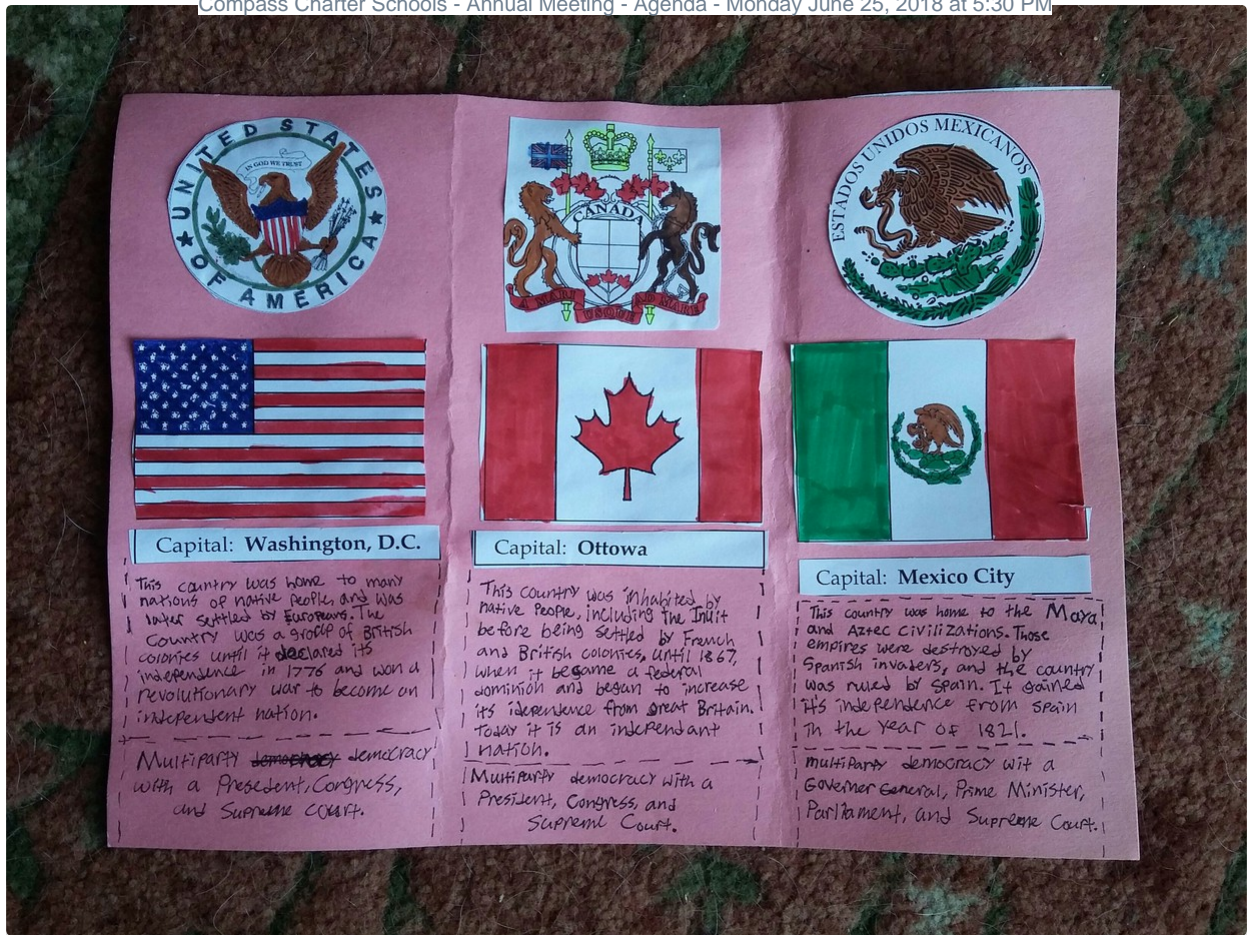 Compass Charter Schools - Annual Meeting - Agenda - Monday June 25, 2018 at 5:30 PM
UNITED STATES
OF AMERICA
IN GOD WE TRUST
CANADA
A MARI
USQUE
AD MARE
ESTADOS UNIDOS MEXICANOS
Capital: Washington, D.C.
This country was home to many
nations of native peoples and was
later settled by Europeans. The
Country was a group of British
colonies until it declared its
independence in 1776 and won a
revolutionary war to become an
independent nation.
Multiparty democracy democracy
with a Presedent, Congress,
and Supreme Court.
Capital: Ottowa
This country was inhabited by
native People, including the Inuit
before being settled by French
and British colonies, until 1867,
when it became a federal
dominion and began to increase
its idependence from great Britain.
Today it is an independant
nation.
Multiparty democracy with a
President, Congress, and
Supreme Court.
Capital: Mexico City
This country was home to the Maya
and Aztec civilizations. Those
empires were destroyed by
Spanish invaders, and the country
was ruled by Spain. It gained
it's independence from spain
in the year of 1821.
multiparty democracy wit a
Governer General, Prime Minister,
Parliament, and Supreme Court.